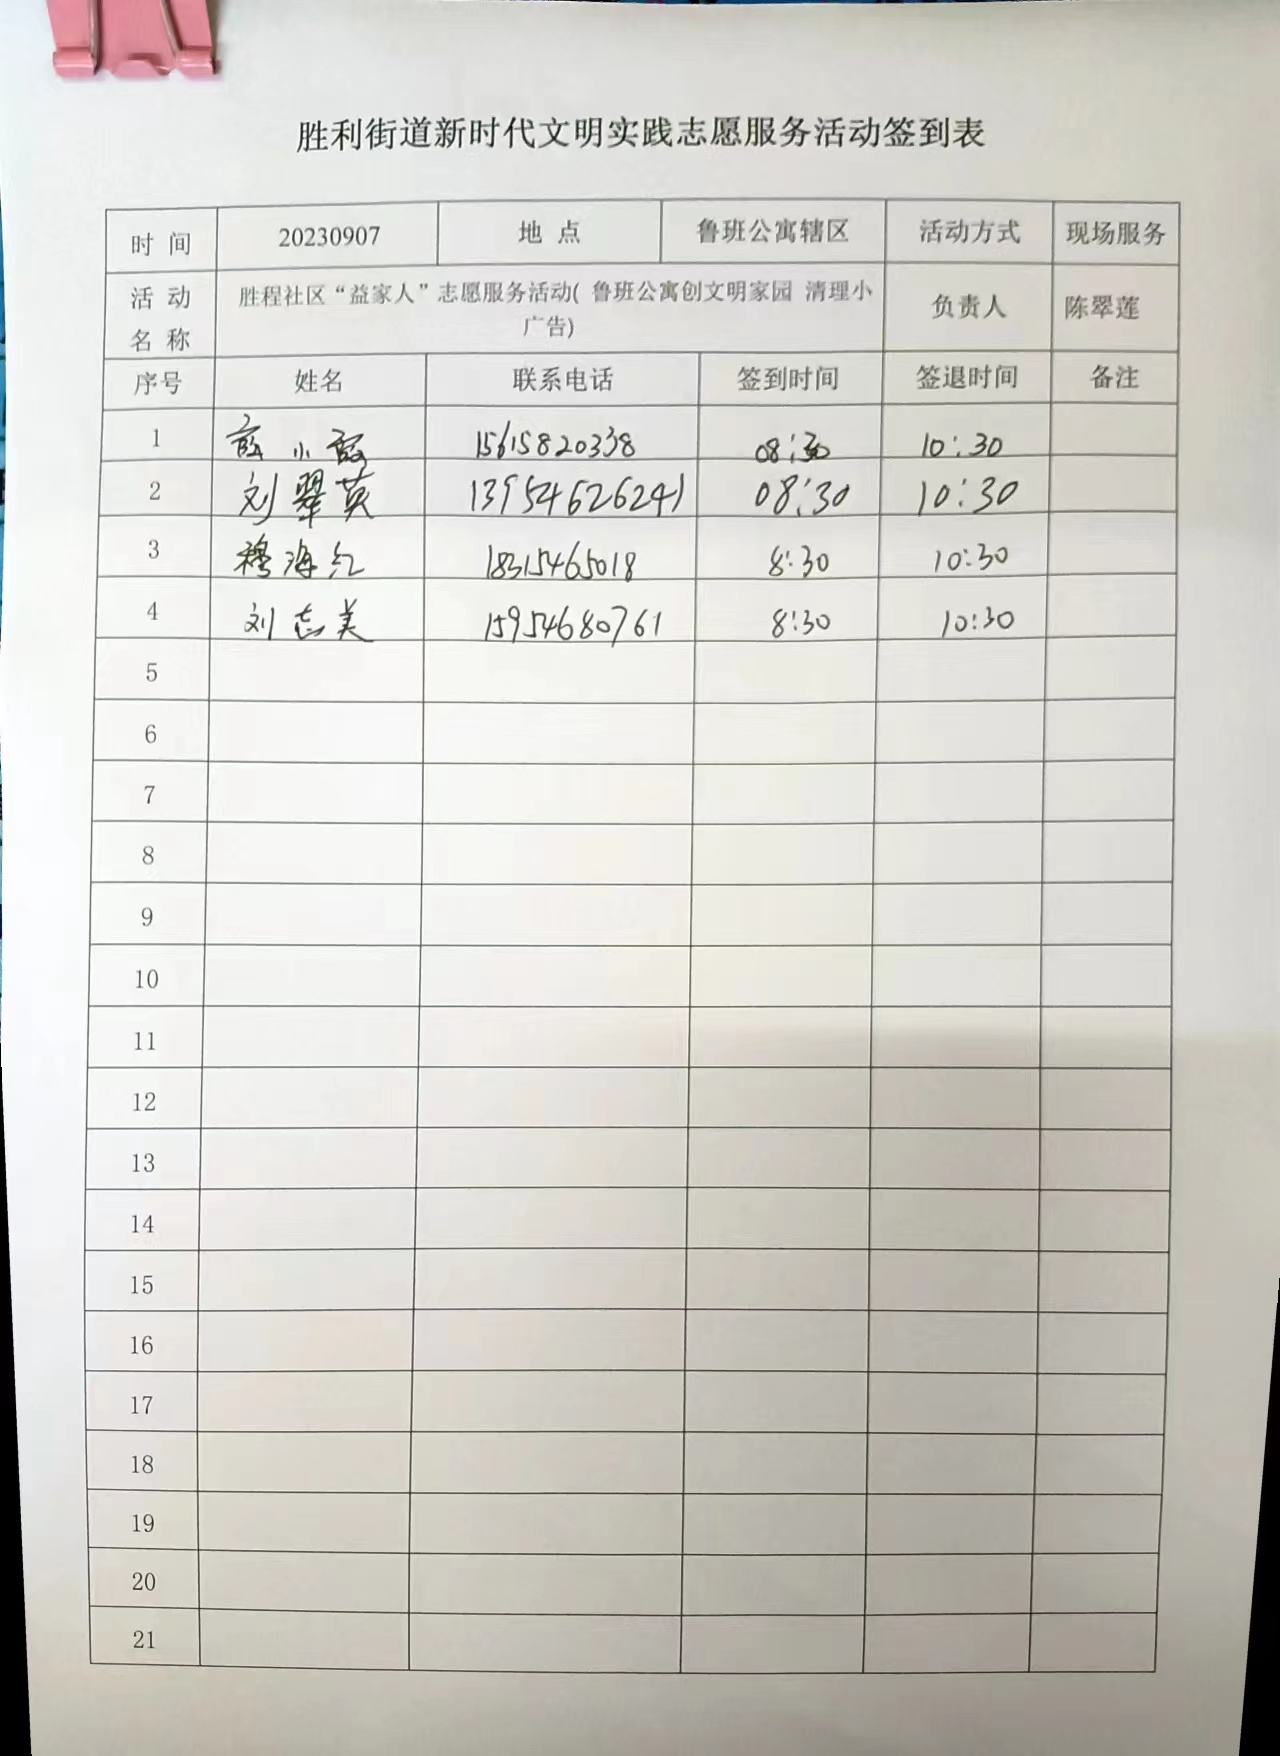 胜利街道新时代文明实践志愿服务活动签到表
时 间 20230907 地 点 鲁班公寓辖区 活动方式 现场服务
活 动 名 称 胜程社区“益家人”志愿服务活动( 鲁班公寓创文明家园 清理小广告) 负责人 陈翠莲
序号 姓名 联系电话 签到时间 签退时间 备注
1 小霞 15615820338 08:30 10:30
2 刘翠英 13954626241 08:30 10:30
3 穆海红 18315465018 8:30 10:30
4 刘志美 15954680761 8:30 10:30
5
6
7
8
9
10
11
12
13
14
15
16
17
18
19
20
21